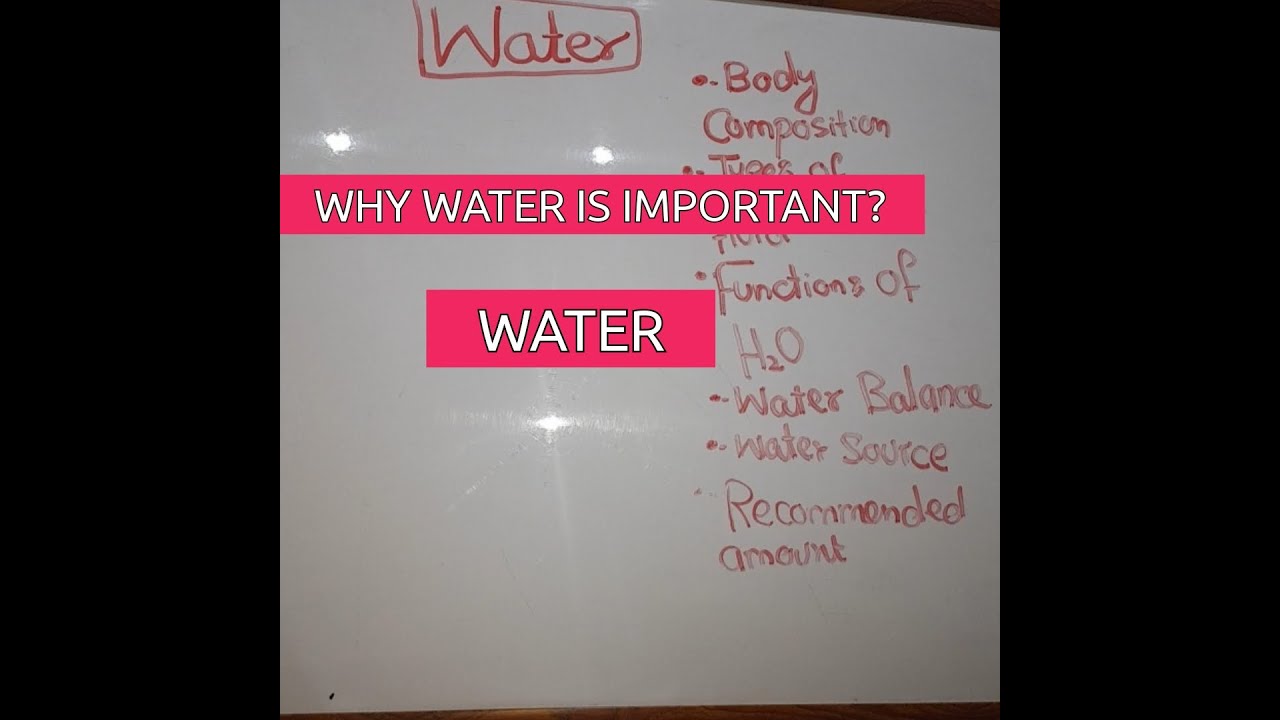 Water
•- Body
Composition
•- Types of
WHY WATER IS IMPORTANT?
• Functions of
WATER
H₂O
•- Water Balance
•- Water Source
- Recommended
amount